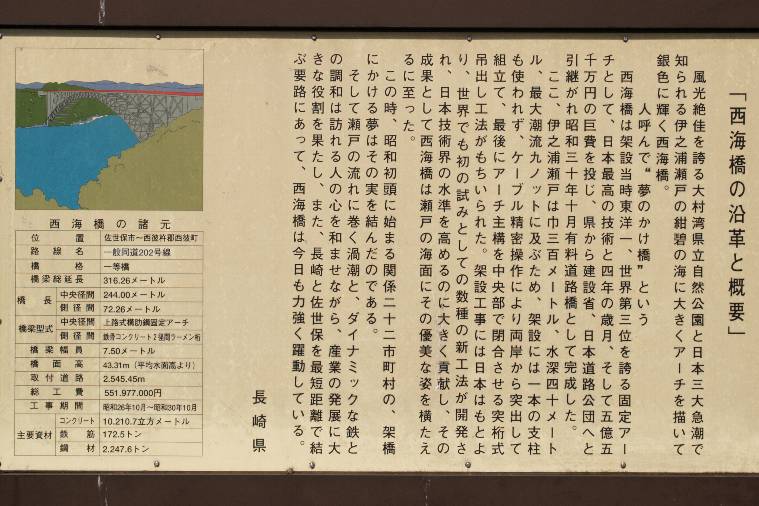 「西海橋の沿革と概要」
風光絶佳を誇る大村湾県立自然公園と日本三大急潮で
知られる伊之浦瀬戸の紺碧の海に大きくアーチを描いて
銀色に輝く西海橋。
人呼んで“夢のかけ橋”という
西海橋は架設当時東洋一、世界第三位を誇る固定アー
チとして、日本最高の技術と四年の歳月、そして五億五
千万円の巨費を投じ、県から建設省、日本道路公団へと
引継がれ昭和三十年十月有料道路橋として完成した。
ここ、伊之浦瀬戸は巾三百メートル、水深四十メート
ル、最大潮流九ノットに及ぶため、架設には一本の支柱
も使われず、ケーブル精密操作により両岸から突出して
組立て、最後にアーチ主構を中央部で閉合させる突桁式
吊出し工法がもちいられた。架設工事には日本はもとよ
り、世界でも初の試みとしての数種の新工法が開発さ
れ、日本技術界の水準を高めるのに大きく貢献し、その
成果として西海橋は瀬戸の海面にその優美な姿を横たえ
るに至った。
この時、昭和初頭に始まる関係二十二市町村の、架橋
にかける夢はその実を結んだのである。
そして瀬戸の流れに巻く渦潮と、ダイナミックな鉄と
の調和は訪れる人の心を和ませながら、産業の発展に大
きな役割を果たし、また、長崎と佐世保を最短距離で結
ぶ要路にあって、西海橋は今日も力強く躍動している。
長崎県
西海橋の諸元
位置 佐世保市～西彼杵郡西彼町
路線名 一般国道202号線
橋格 一等橋
橋梁総延長 316.26メートル
橋長 中央径間 244.00メートル
側径間 72.26メートル
橋梁型式 中央径間 上路式構肋鋼固定アーチ
側径間 鉄骨コンクリート2径間ラーメン桁
橋梁幅員 7.50メートル
橋面高 43.31m（平均水面高より）
取付道路 2.545.45m
総工費 551.977.000円
工事期間 昭和26年10月～昭和30年10月
主要資材 コンクリート 10.210.7立方メートル
鉄筋 172.5トン
鋼材 2.247.6トン